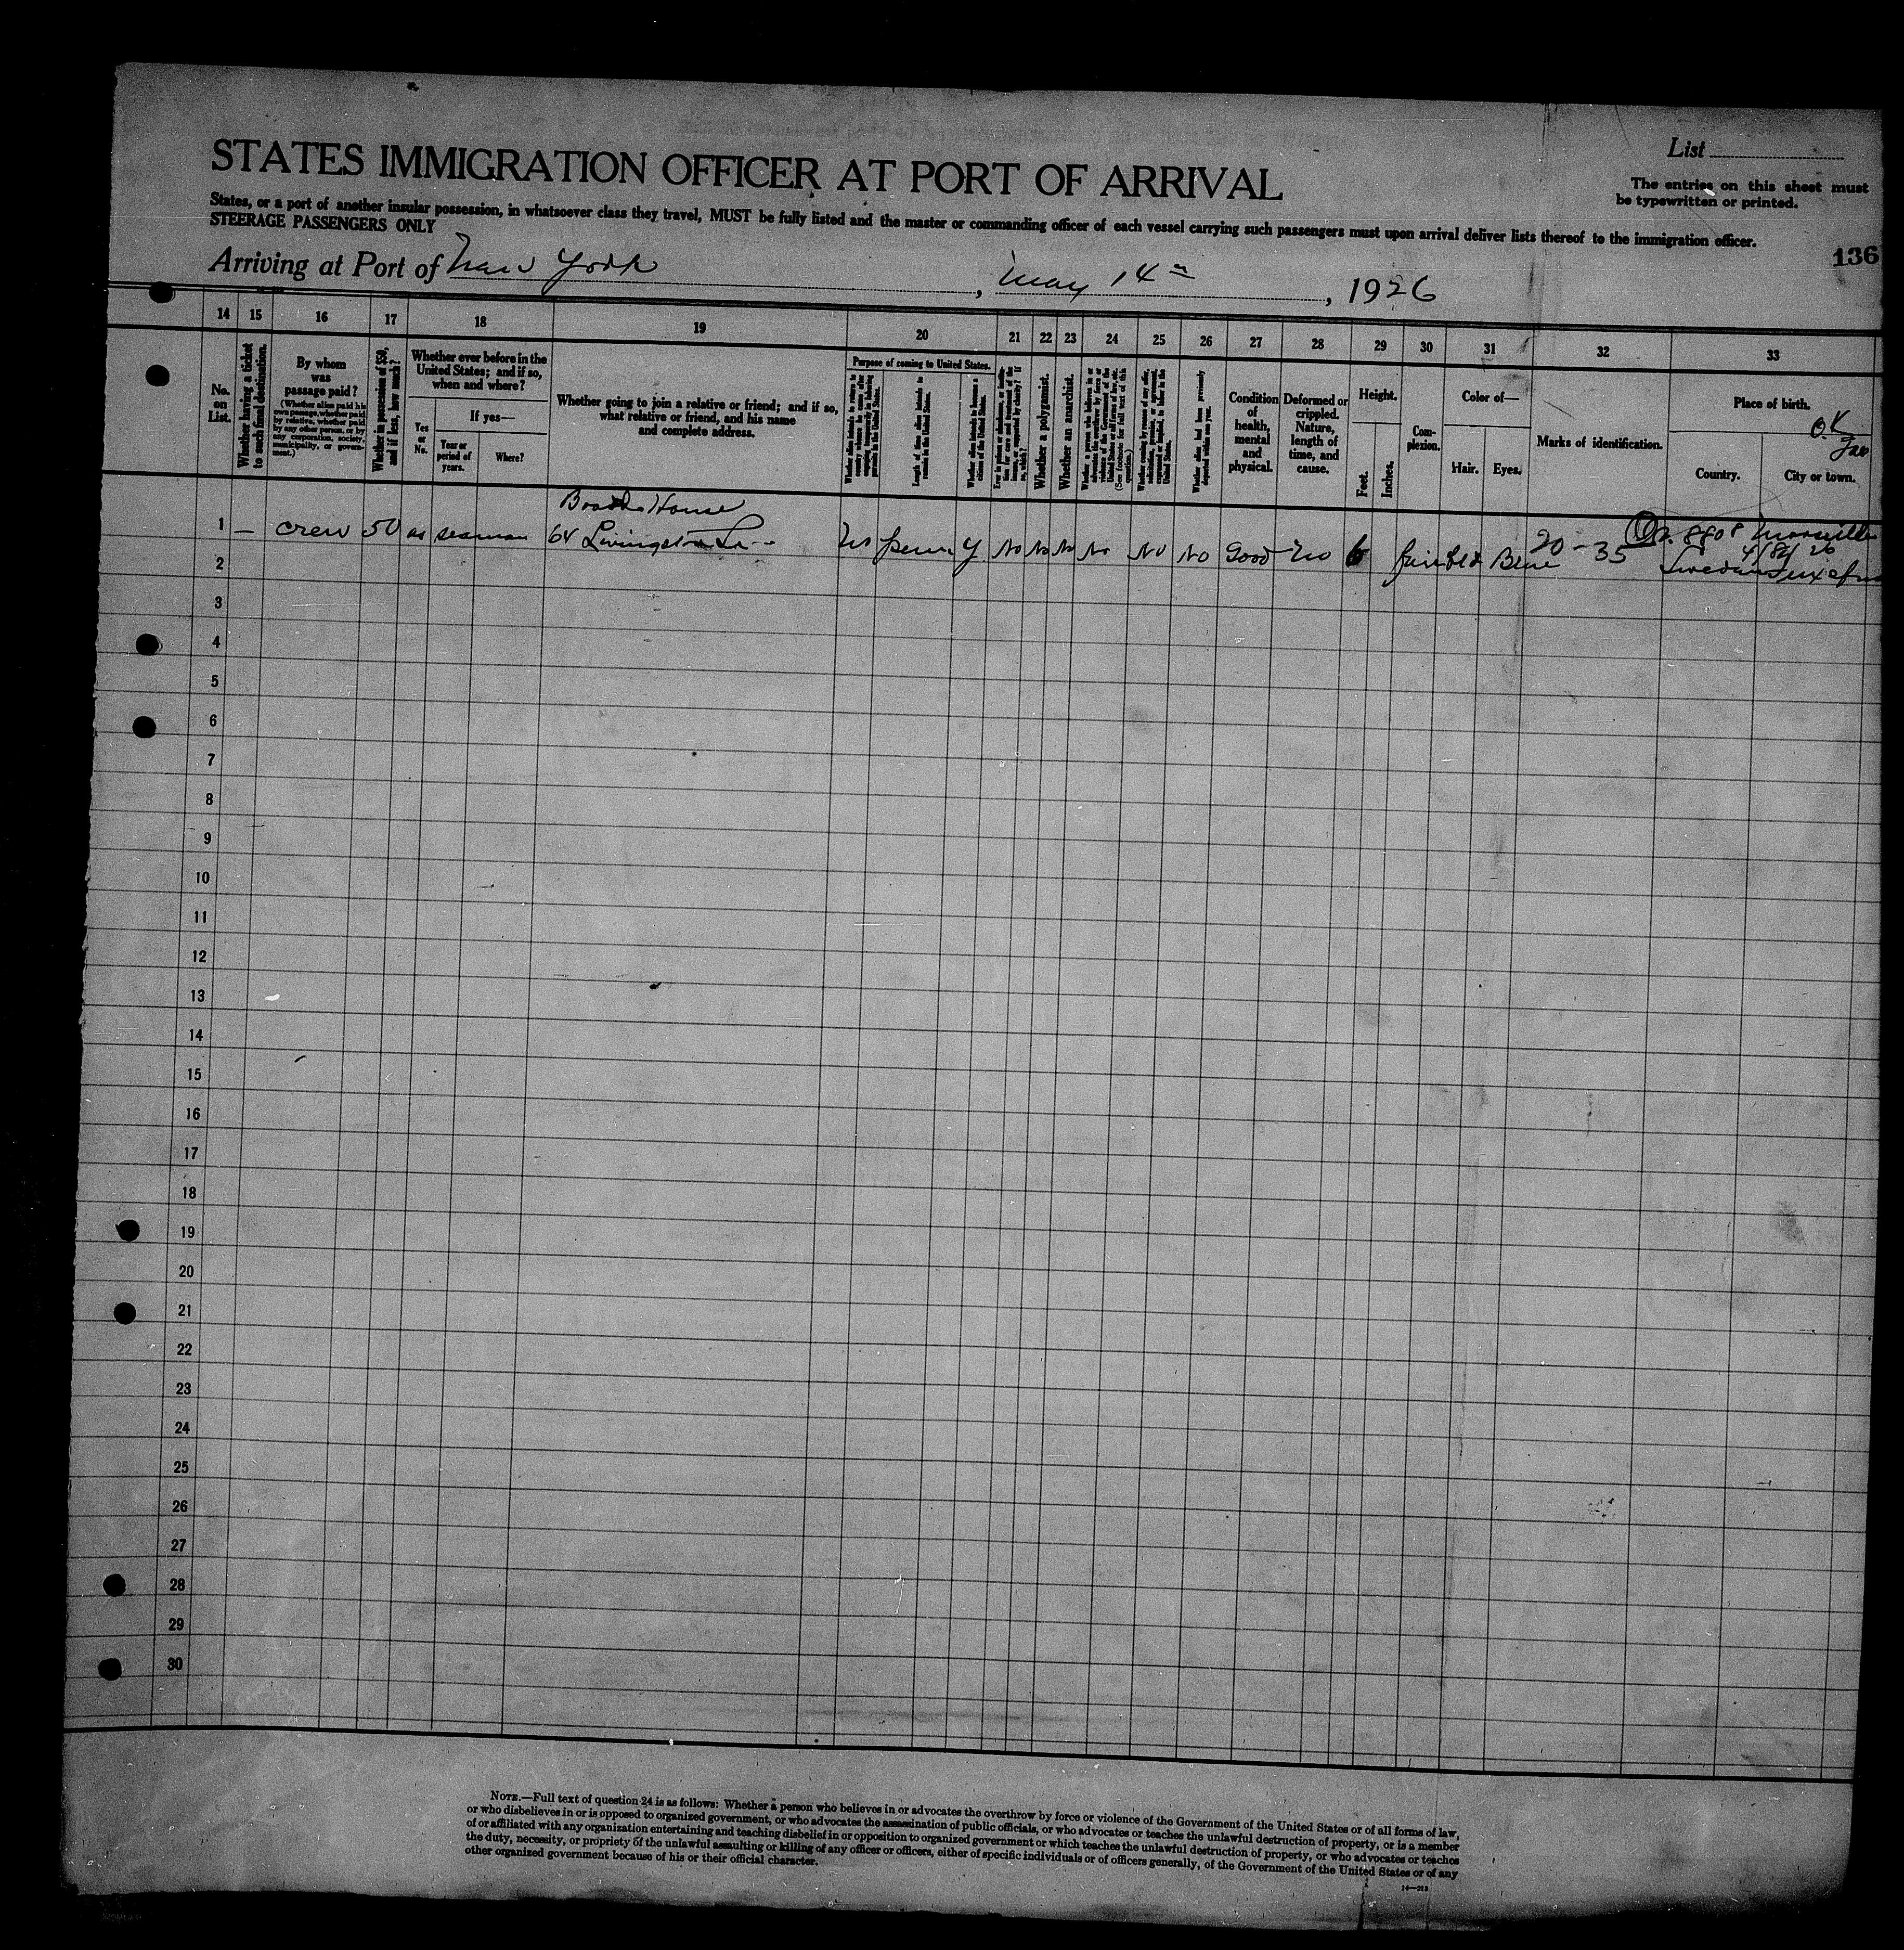 STATES IMMIGRATION OFFICER AT PORT OF ARRIVAL
List
The entries on this sheet must
be typewritten or printed.
States, or a port of another insular possession, in whatsoever class they travel, MUST be fully listed and the master or commanding officer of each vessel carrying such passengers must upon arrival deliver lists thereof to the immigration officer.
STEERAGE PASSENGERS ONLY
136
Arriving at Port of New York, May 14th, 1926
14 15 16 17 18 19 20 21 22 23 24 25 26 27 28 29 30 31 32 33
No. on List.
Whether having a ticket to such final destination.
By whom was passage paid?
(Whether alien paid his own passage, whether paid by relative, whether paid by any other person, or by any corporation, society, municipality, or government.)
Whether in possession of $50, and if less, how much?
Whether ever before in the United States; and if so, when and where?
Yes or No.
If yes—
Year or period of years.
Where?
Whether going to join a relative or friend; and if so, what relative or friend, and his name and complete address.
Purpose of coming to United States.
Length of time alien intends to remain in the United States.
Whether alien intends to become a citizen of the United States.
Whether a polygamist.
Whether an anarchist.
Whether alien had been previously deported within one year.
Condition of health, mental and physical.
Deformed or crippled. Nature, length of time, and cause.
Height.
Feet.
Inches.
Complexion.
Color of—
Hair.
Eyes.
Marks of identification.
Place of birth.
O.K.
Country.
City or town.
House
1 — crew 50 as seaman 64 Livingston No perm y No No No No No No Good No 6 fair Bld Blue 20 - 35
2
3
4
5
6
7
8
9
10
11
12
13
14
15
16
17
18
19
20
21
22
23
24
25
26
27
28
29
30
NOTE.—Full text of question 24 is as follows: Whether a person who believes in or advocates the overthrow by force or violence of the Government of the United States or of all forms of law,
or who disbelieves in or is opposed to organized government, or who advocates the assassination of public officials, or who advocates or teaches the unlawful destruction of property, or is a member
of or affiliated with any organization entertaining and teaching disbelief in or opposition to organized government or which teaches the unlawful destruction of property, or who advocates or teaches
the duty, necessity, or propriety of the unlawful assaulting or killing of any officer or officers, either of specific individuals or of officers generally, of the Government of the United States or of any
other organized government because of his or their official character.